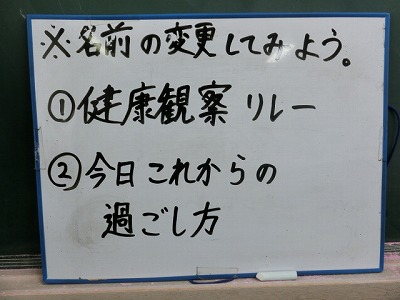 ※名前の変更してみよう。
①健康観察リレー
②今日これからの
過ごし方